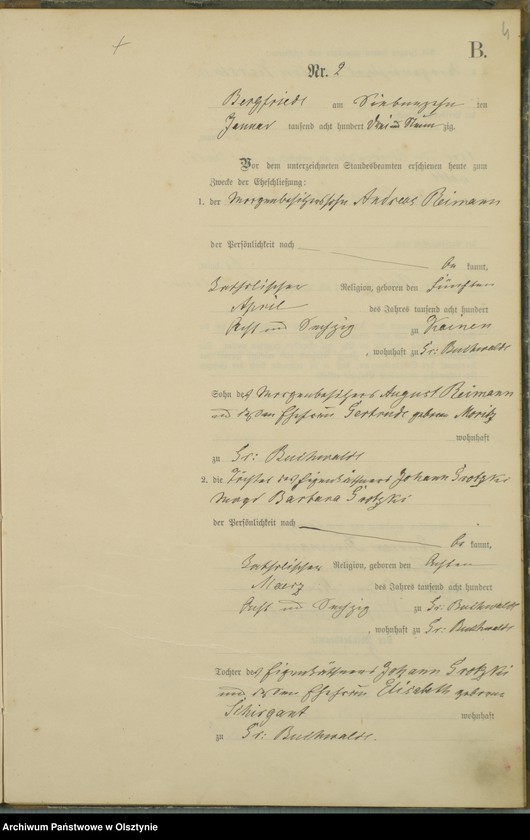 4
B.
Nr. 2
Bergfriede am Siebenzehn ten
Januar tausend acht hundert Drei und Neun zig.
Vor dem unterzeichneten Standesbeamten erschienen heute zum
Zwecke der Eheschließung:
1. der Morgenbesitzersohn Andreas Reimann
der Persönlichkeit nach
be kannt,
katholischer Religion, geboren den Fünften
April des Jahres tausend acht hundert
Acht und Sechzig zu
, wohnhaft zu Gr: Buchwalde
Sohn des Morgenbesitzers August Reimann
und dessen Ehefrau Gertrude geborene Moritz
wohnhaft
zu Gr: Buchwalde
2. die Tochter des Eigenkäthners Johann Grotzki
Magd Barbara Grotzki
der Persönlichkeit nach
be kannt,
katholischer Religion, geboren den Achten
Maerz des Jahres tausend acht hundert
Acht und Sechzig zu Gr: Buchwalde
, wohnhaft zu Gr: Buchwalde
Tochter des Eigenkäthners Johann Grotzki
und dessen Ehefrau Elisabeth geborene
wohnhaft
zu Gr: Buchwalde.
Archiwum Państwowe w Olsztynie